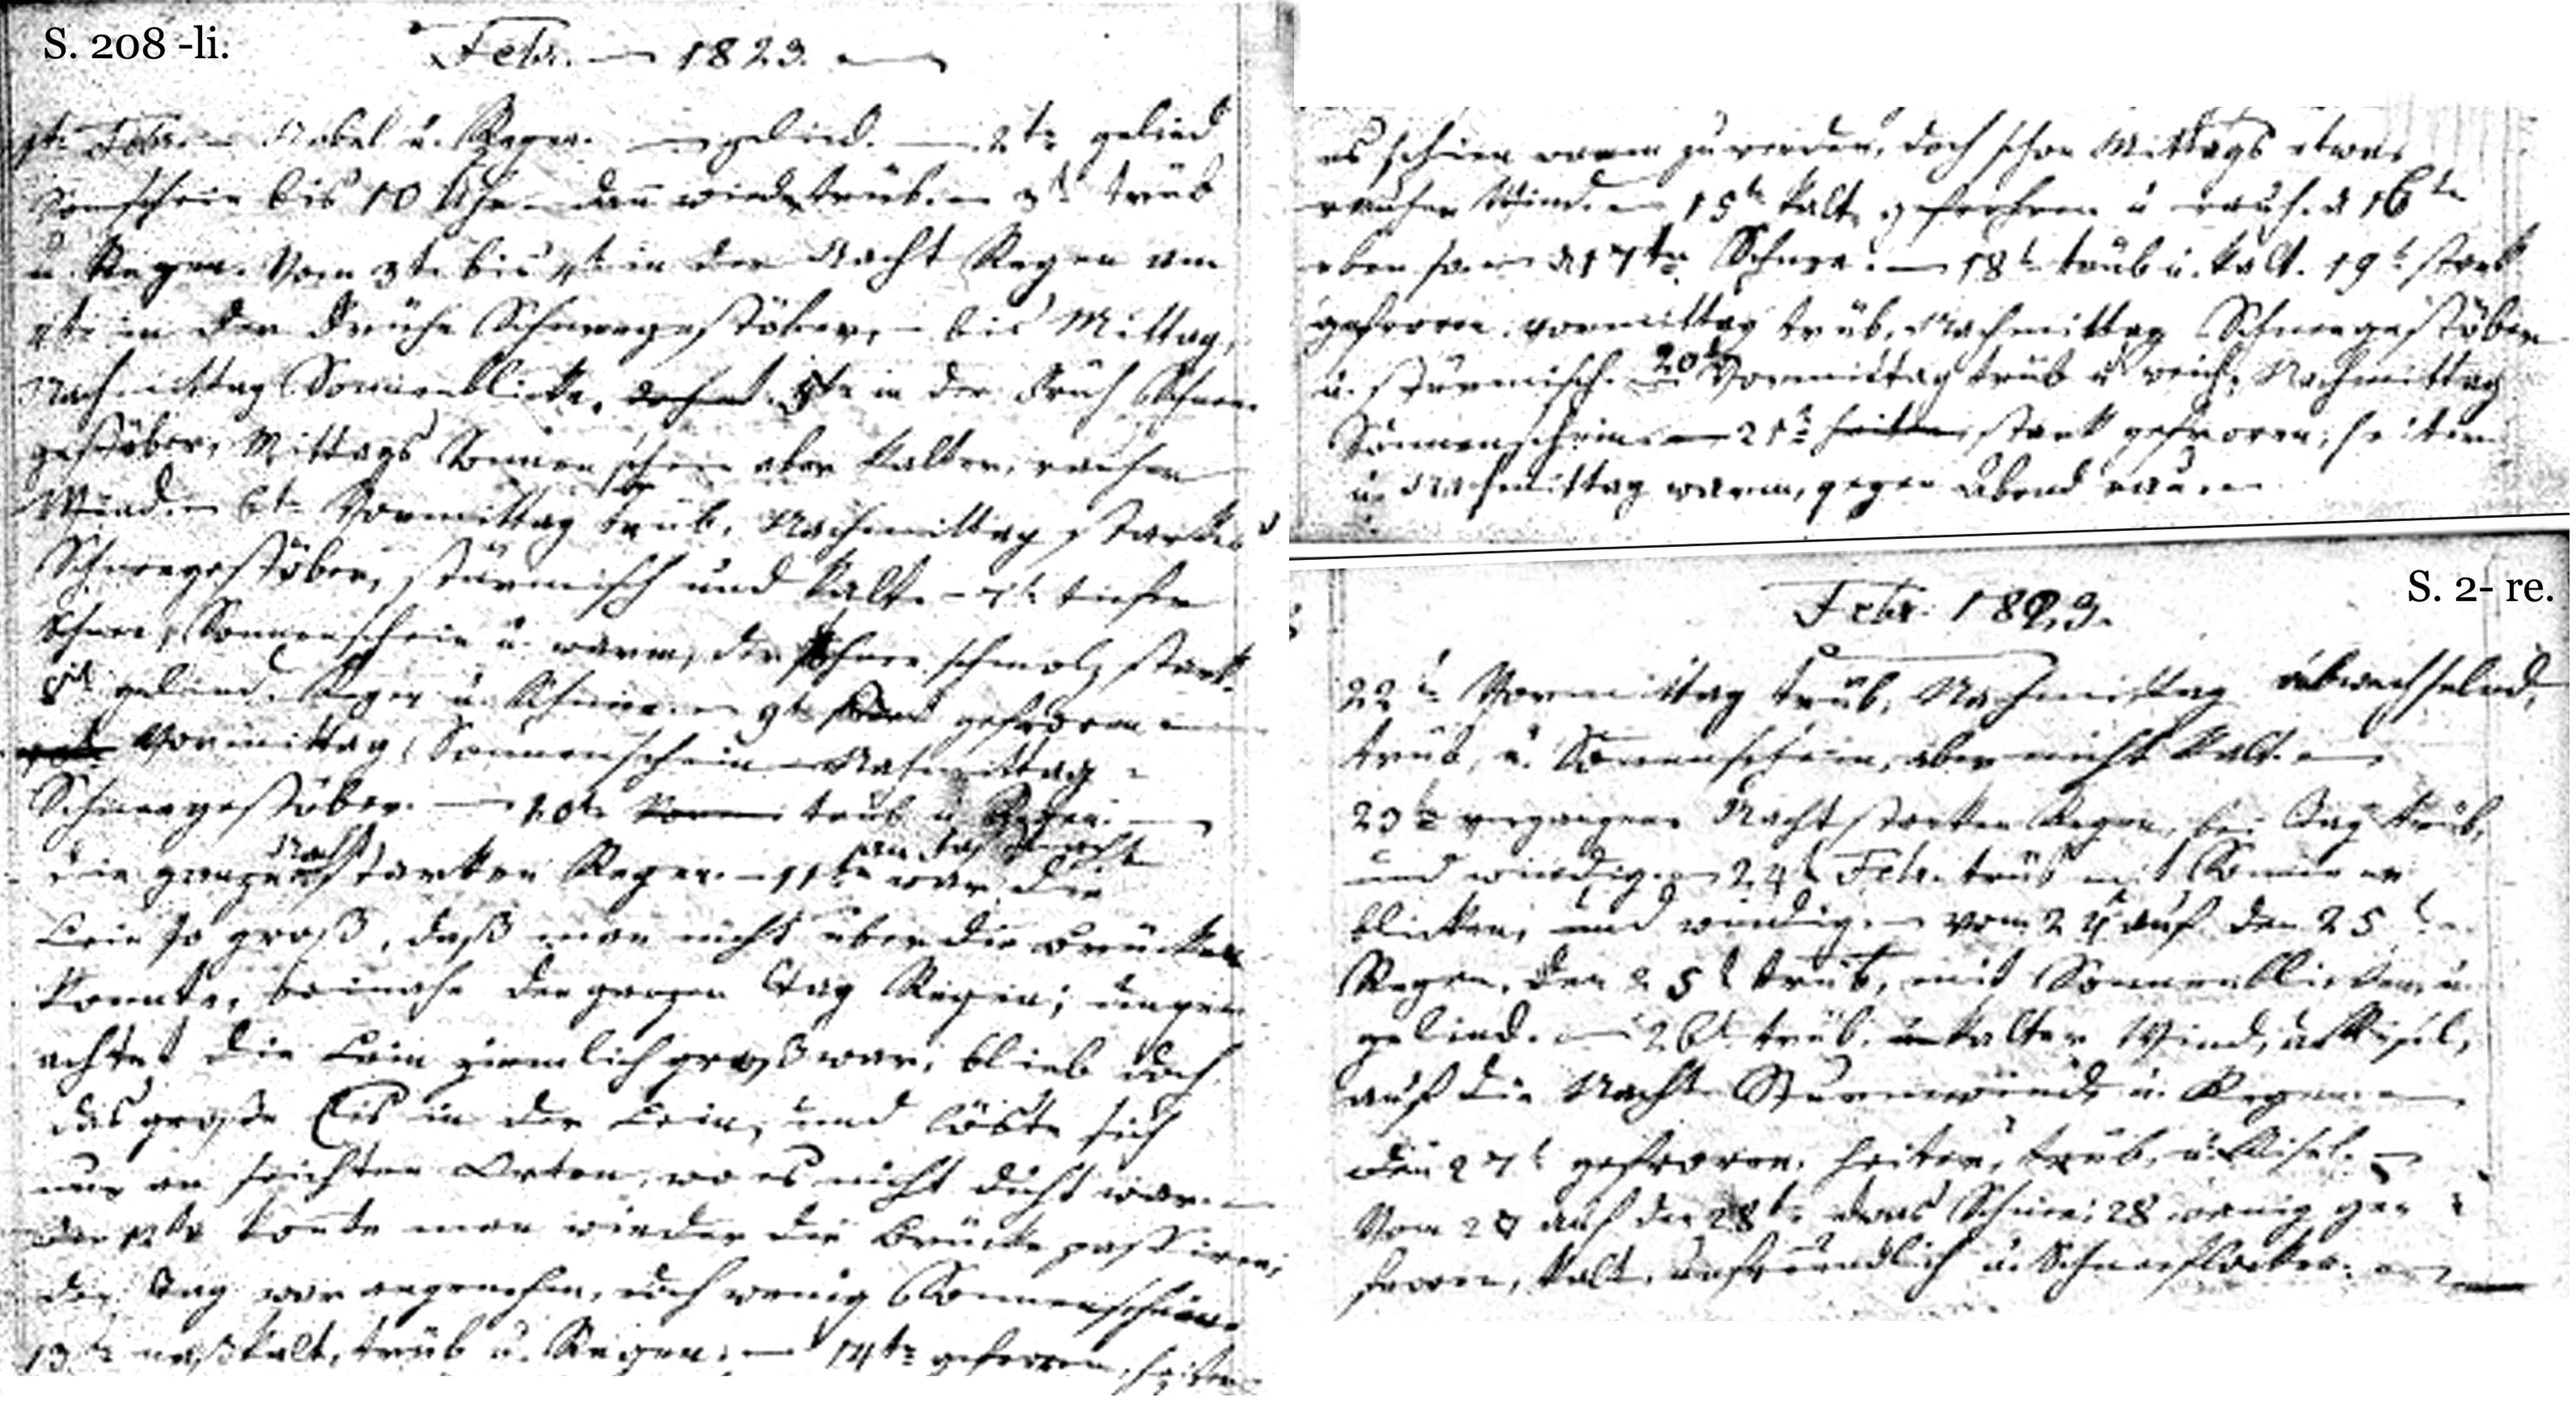 S. 208 -li.
Febr. — 1823. —
1te Febr. – Nebel u. Regen. — gelind. — 2te gelind
Sonnschein bis 10 Uhr – dañ wieder trüb. – 3t. trüb
u. Regen. Vom 3t. bis 4t. in der Nacht Regen am
4te in der Frühe Schneegestöber, – bis Mittag,
Nachmittag Sonnenblicke. 5te in der Früh Schnee-
gestöber, Mittags Sonnenschein aber kalter, rauher
Wind. – 6te Vormittag trüb, Nachmittag starkes
Schneegestöber, stürmisch und kalt. – 7t. tiefer
Schnee, Sonnenschein u. warm, der Schnee schmolz stark.
8te gelind. Regen u. Schnee. – 9te gefroren –
Vormittag Sonnenschein – Nachmittag
Schneegestöber. — 10te trüb u. Regen. —
die ganze Nacht starken Regen. – 11te war die
Lein so groß, daß man nicht über die Brücken
konnte, beinahe den ganzen Tag Regen; ungeu-
achtet die Lein ziemlich groß war, blieb doch
das große Eis in der Lein, und lößte sich
nur an seichten Orten, wo es nicht dicht war. –
Den 12te konte man wieder die Brücke passiren,
der Tag war angenehm, doch wenig Sonnenschein.
13te naßkalt, trüb u. Regen. — 14te gefroren, heiter
es schien warm zu werden, doch schon Mittags etwas
rauher Wind. – 15te kalt, gefrohren u rauh. d 16te
eben so. – d 17te Schnee. — 18t trüb u. kalt. 19t stark
gefroren. vormittag trüb, Nachmittag Schneegestöber
u. stürmisch. 20te Vormittag trüb u weich, Nachmittag
Sonnenschein. — 21te heiter, stark gefroren, heiter
u. Nachmittag warm, gegen Abend rau. –
S. 2- re.
Febr. 1823.
22te Vormittag trüb, Nachmittag abwechselnd,
trüb, u. Sonnenschein, aber nicht kalt. –
23te vergangene Nacht starken Regen, bei Tag trüb,
und windig. – 24t Febr. trüb mit Sonnen
blicken, und windig. – vom 24 auf den 25t
Regen. den 25t trüb, mit Sonnenblicken, u.
gelind. — 26t trüb. kalter Wind, u. Risel,
auf die Nacht Sturmwinde u. Regen. –
den 27t gefroren. heiter, trüb, u. Risel. –
Vom 27 auf den 28te etwas Schnee; 28 wenig ge-
froren, kalt, unfreundlich u. Schneeflocken. –